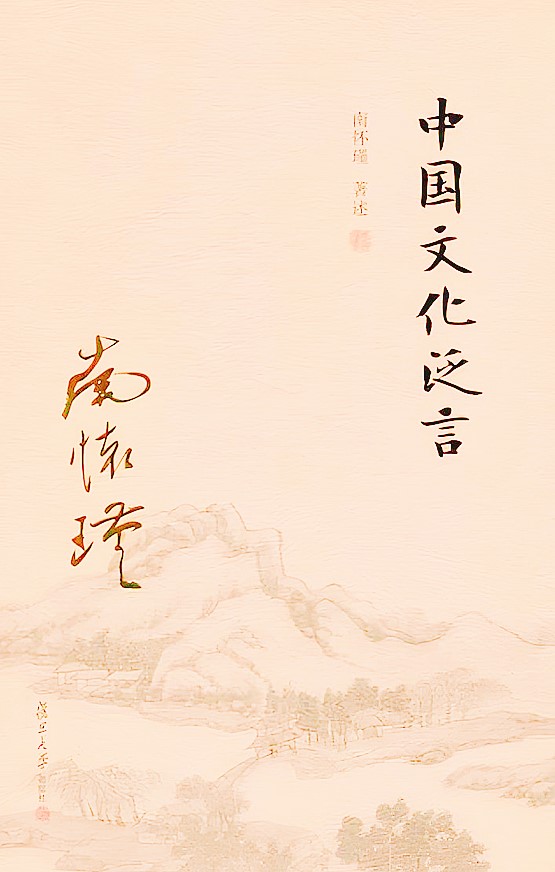 中国文化泛言
南怀瑾 著述
南懷瑾
復旦大學出版社